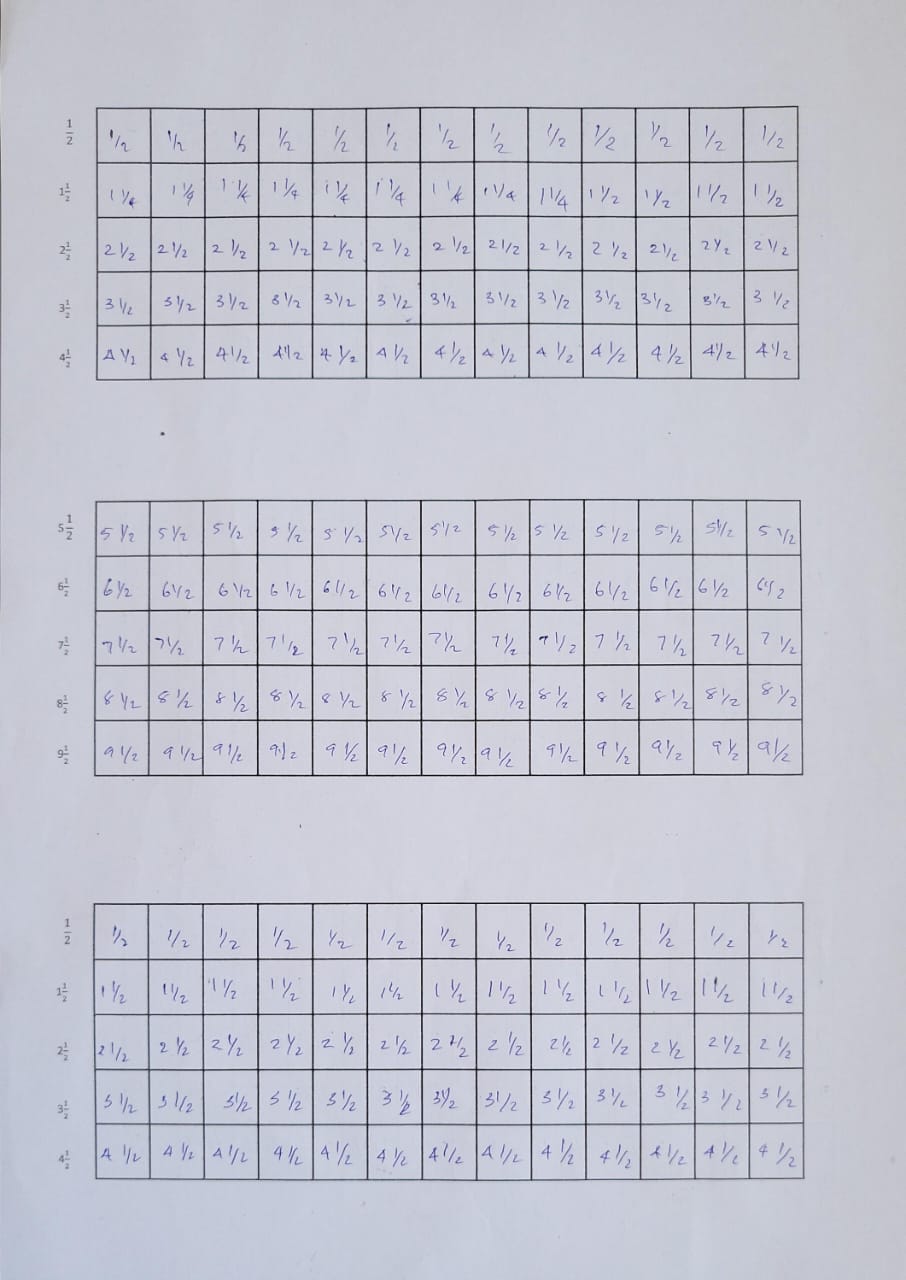 1/2 1/2 1/2 1/2 1/2 1/2 1/2 1/2 1/2 1/2 1/2 1/2 1/2 1/2
1 1/2 1 1/4 1 1/4 1 1/4 1 1/4 1 1/4 1 1/4 1 1/4 1 1/4 1 1/4 1 1/2 1 1/2 1 1/2 1 1/2
2 1/2 2 1/2 2 1/2 2 1/2 2 1/2 2 1/2 2 1/2 2 1/2 2 1/2 2 1/2 2 1/2 2 1/2 2 1/2 2 1/2
3 1/2 3 1/2 3 1/2 3 1/2 3 1/2 3 1/2 3 1/2 3 1/2 3 1/2 3 1/2 3 1/2 3 1/2 3 1/2 3 1/2
4 1/2 4 1/2 4 1/2 4 1/2 4 1/2 4 1/2 4 1/2 4 1/2 4 1/2 4 1/2 4 1/2 4 1/2 4 1/2 4 1/2
5 1/2 5 1/2 5 1/2 5 1/2 5 1/2 5 1/2 5 1/2 5 1/2 5 1/2 5 1/2 5 1/2 5 1/2 5 1/2 5 1/2
6 1/2 6 1/2 6 1/2 6 1/2 6 1/2 6 1/2 6 1/2 6 1/2 6 1/2 6 1/2 6 1/2 6 1/2 6 1/2 6 1/2
7 1/2 7 1/2 7 1/2 7 1/2 7 1/2 7 1/2 7 1/2 7 1/2 7 1/2 7 1/2 7 1/2 7 1/2 7 1/2 7 1/2
8 1/2 8 1/2 8 1/2 8 1/2 8 1/2 8 1/2 8 1/2 8 1/2 8 1/2 8 1/2 8 1/2 8 1/2 8 1/2 8 1/2
9 1/2 9 1/2 9 1/2 9 1/2 9 1/2 9 1/2 9 1/2 9 1/2 9 1/2 9 1/2 9 1/2 9 1/2 9 1/2 9 1/2
1/2 1/2 1/2 1/2 1/2 1/2 1/2 1/2 1/2 1/2 1/2 1/2 1/2 1/2
1 1/2 1 1/2 1 1/2 1 1/2 1 1/2 1 1/2 1 1/2 1 1/2 1 1/2 1 1/2 1 1/2 1 1/2 1 1/2 1 1/2
2 1/2 2 1/2 2 1/2 2 1/2 2 1/2 2 1/2 2 1/2 2 1/2 2 1/2 2 1/2 2 1/2 2 1/2 2 1/2 2 1/2
3 1/2 3 1/2 3 1/2 3 1/2 3 1/2 3 1/2 3 1/2 3 1/2 3 1/2 3 1/2 3 1/2 3 1/2 3 1/2 3 1/2
4 1/2 4 1/2 4 1/2 4 1/2 4 1/2 4 1/2 4 1/2 4 1/2 4 1/2 4 1/2 4 1/2 4 1/2 4 1/2 4 1/2